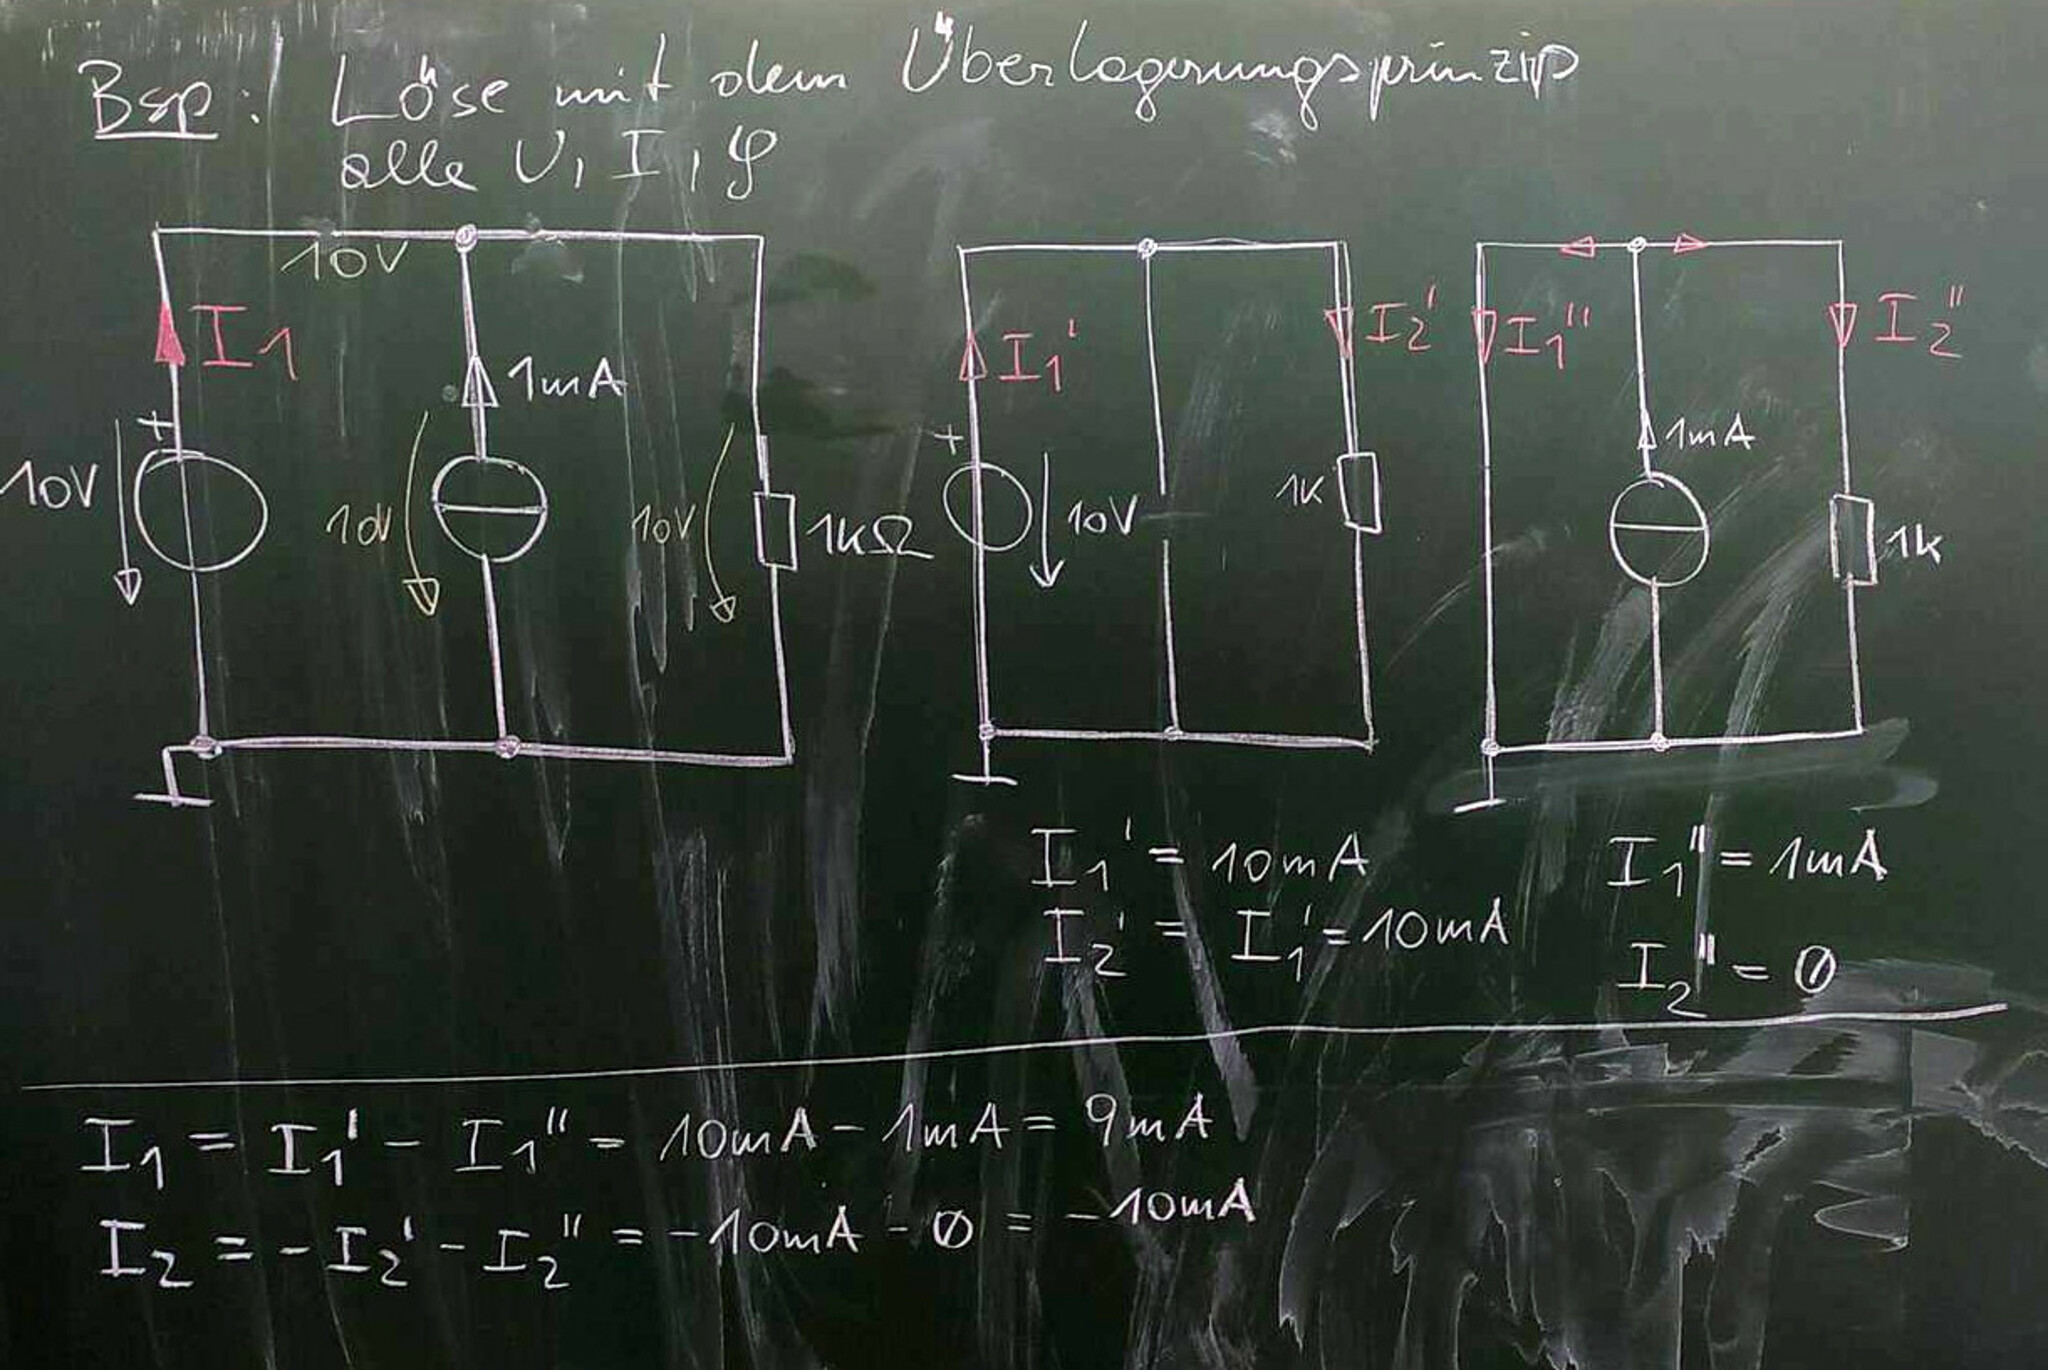 Bsp: Löse mit dem Überlagerungsprinzip
alle U, I, φ
10V
I1
1mA
+
10V
10V
10V
1kΩ
I1'
I2'
+
10V
1K
I1''
I2''
1mA
1k
I1' = 10mA
I2' = I1' = 10mA
I1'' = 1mA
I2'' = 0
I1 = I1' - I1'' = 10mA - 1mA = 9mA
I2 = -I2' - I2'' = -10mA - 0 = -10mA